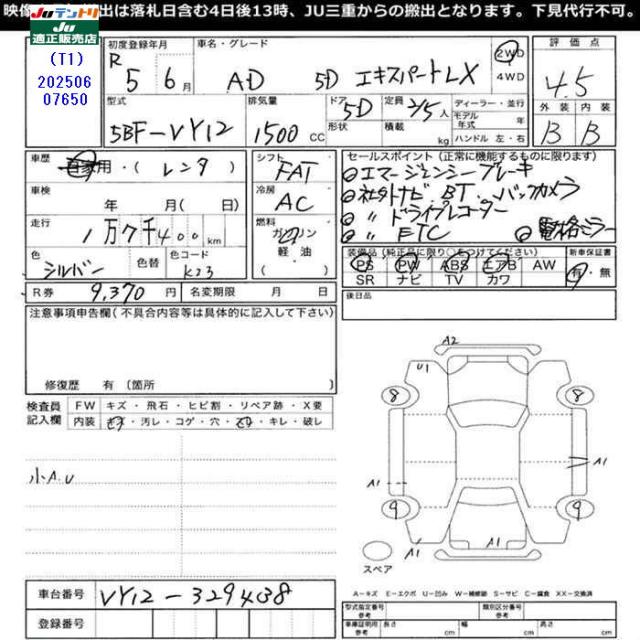 映像 出は落札日含む4日後13時、JU三重からの搬出となります。下見代行不可。
JUテントリ
JU
適正販売店
(T1)
202506
07650
初度登録年月
R 5 6月
車名・グレード
AD 5D エキスパートLX
2WD
4WD
評価点
4.5
外装 内装
B B
型式
5BF-VY12
排気量
1500 CC
ドア 5D
形状
定員 2/5人
積載 kg
ディーラー・並行
モデル年式 年式
ハンドル 左・右
車歴
自家用・(レンタ)
シフト
FAT
車検
年 月( 日)
冷房
AC
走行
1万7千400km
燃料
ガソリン
軽・油
色
シルバー
色替
色コード
K23
セールスポイント(正常に機能するものに限ります)
エマージェンシーブレーキ
社外ナビ.BT.バックカメラ
〃 ドライブレコーダー
〃 ETC
電格ミラー
装備品(純正品に限り○をつけてください)
PS PW ABS エアB AW
SR ナビ TV カワ
新車保証書
有・無
R券 9,370円
名変期限 月 日
後日品
注意事項申告欄(不具合内容等は具体的に記入して下さい)
修復歴 有(箇所
検査員
記入欄
FW キズ・飛石・ヒビ割・リペア跡・X要
内装 キズ・汚レ・コゲ・穴・ キレ・破レ
小A.U
A2
U1
8 8
A1 A1
9 9
A1 A1
スペア
A-キズ E-エクボ U-凹み W-補修跡 S-サビ C-腐食 XX-交換済
車台番号
VY12-329408
登録番号
型式指定番号
参考
類別区分番号
参考
車庫証明用
参考
長さ cm
幅 cm
高さ cm